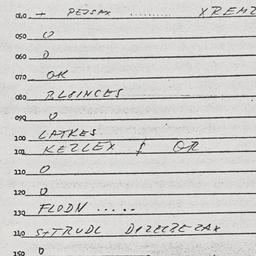 040 + PEJSAX .......... XREMZ
050 O
060 O
070 OR
080 BLOINCES
090 O
100 LATKES
101 KEZLEX & OR
110 O
120 O
130 FLODN .....
140 STRUDL
150 O